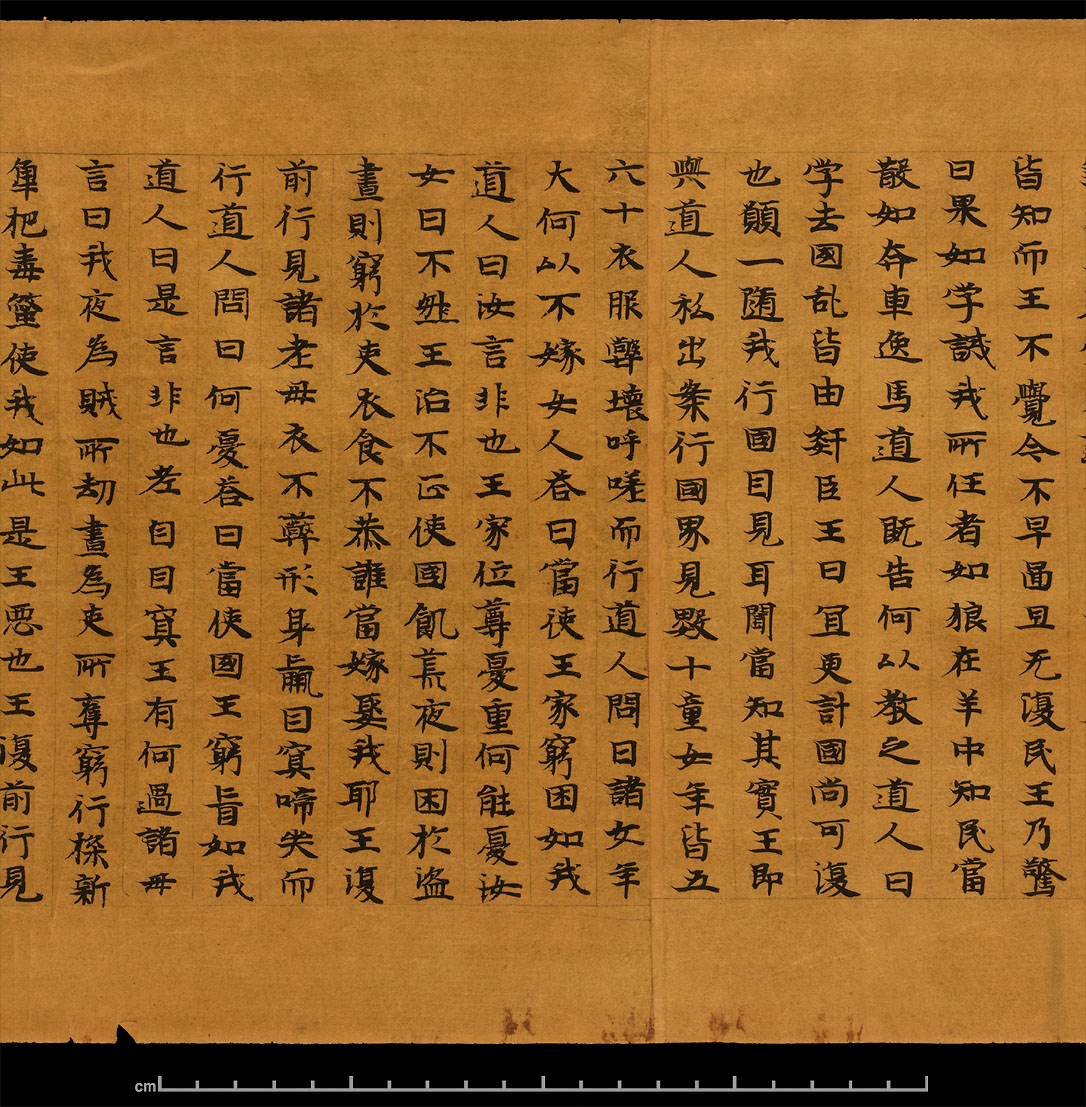 皆知而王不覺今不早啚旦无復民王乃驚
曰果如学誡我所任者如狼在羊中知民當
散如奔車逸馬道人既告何以教之道人曰
学去國乱皆由姧臣王曰冝更計國尚可復
也願一随我行國目見耳聞當知其實王即
與道人私出案行國界見數十童女年皆五
六十衣服弊壞呼嗟而行道人問曰諸女年
大何以不嫁女人荅曰當使王家窮困如我
道人曰汝言非也王家位尊憂重何能憂汝
女曰不然王治不正使國飢荒夜則困於盜
晝則窮於吏衣食不恭誰當嫁娶我耶王復
前行見諸老母衣不蔽形身羸目冥啼哭而
行道人問曰何憂荅曰當使國王窮盲如我
道人曰是言非也老自目冥王有何過諸母
言曰我夜為賊所劫晝為吏所奪窮行採新
毒螫使我如此是王惡也王復前行見
cm